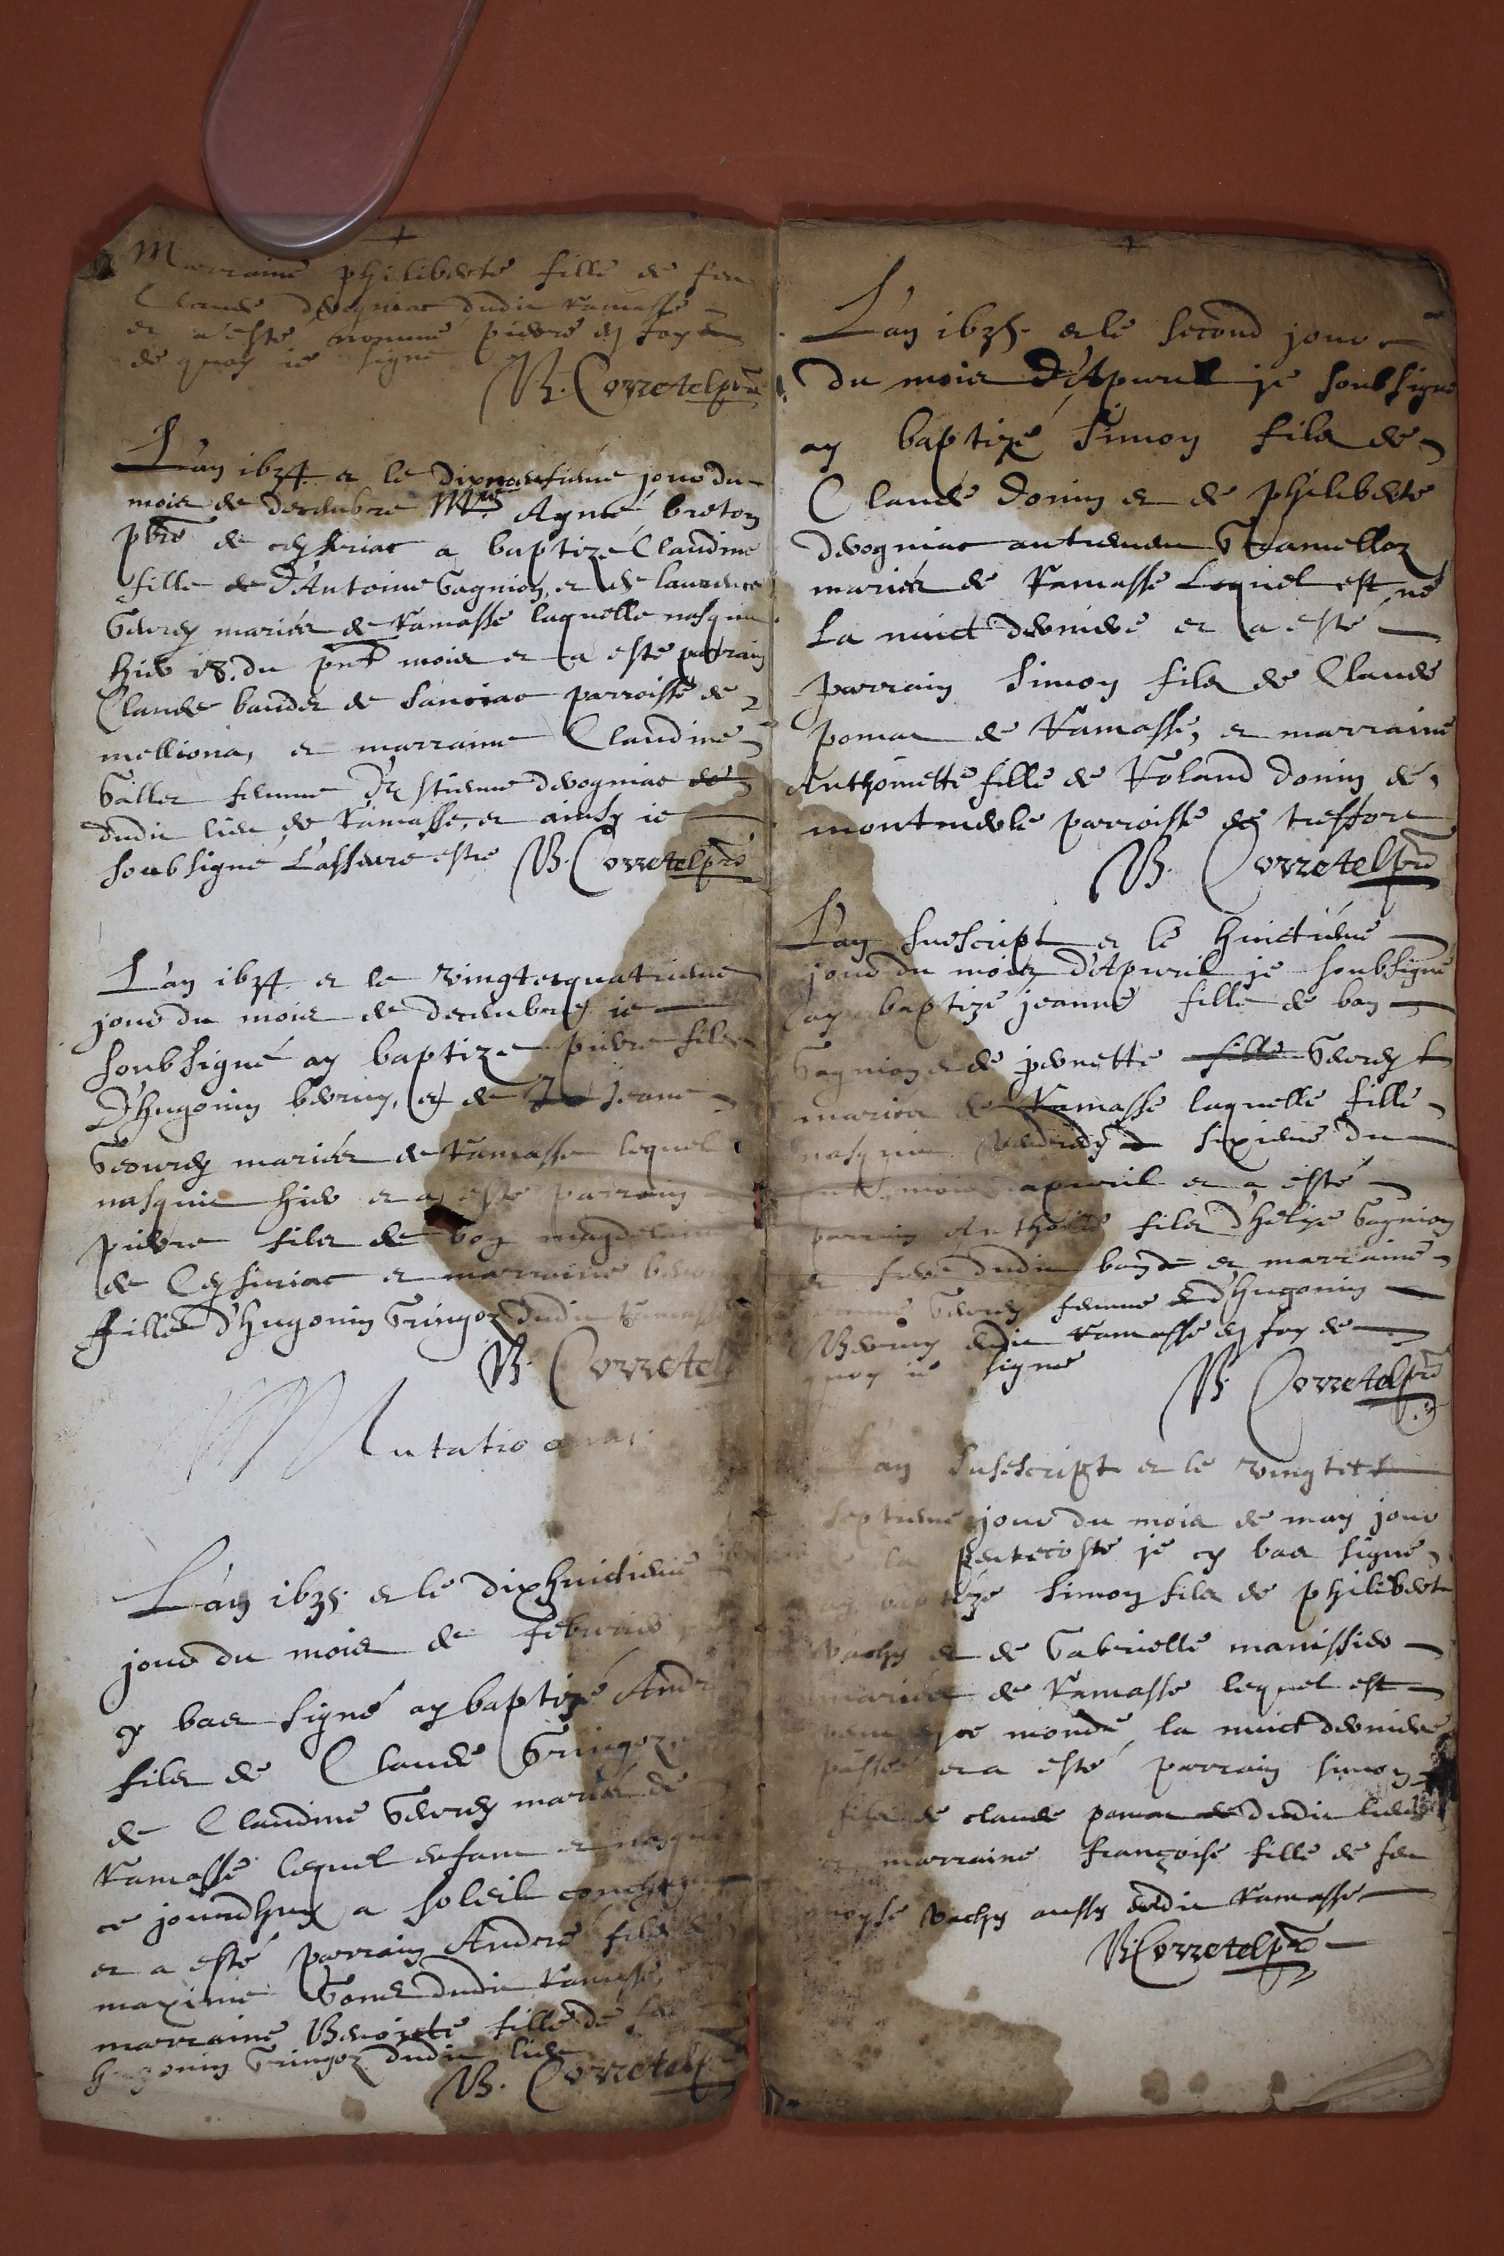 Marraine philiberte fille de feu
Claude devogniat dudit Ramasse
et a esté nommé pierre en foy
de quoy ie signe
B. Corretel pbre
L'an 1634. et le dixneufieme jour du
mois de decembre Mre Aymé breton
pbre de ceyseriac a baptizé Claudine
fille de d'Antoine Gagnion, et de laurence
Gevrey mariés de Ramasse laquelle nasquit
hier 18. du pnt mois et a esté parrain
Claude baudet de Sanciac parroisse de
melliona, et marraine Claudine
Galler femme d'Estienne devogniat de
dudit lieu de Ramasse, et ainsy ie
soubsigné L'asseure estre B. Corretel pbre
L'an 1634. et le vingtetquatrieme
jour du mois de decembre ie
soubsigné ay baptizé pierre fils
D'hugonin berruy, et de Jeane
Gevrey mariés de Ramasse lequel
nasquit hier et a esté parrain
pierre fils de boy magdelain
de Ceyseriac et marraine
fille d'hugonin Gringoz dudit Ramasse
B. Corretel
Mutatio anni
L'an 1635. et le dixhuictieme
jour du mois de febvrier
cy bas signé ay baptizé André
fils de Claude Gringoz
de Claudine Gevrey mariés de
Ramasse lequel enfant nasquit
ce jourdhuy a soleil couchant
et a esté parrain André fils de
maxime Goner dudit Ramasse
marraine Benoiste fille de feu
hugonin Gringoz dudit lieu
B. Corretel p
L'an 1635. et le second jour
du mois D'Apvril je soubsigné
ay baptizé simon fils de
Claude Donin et de philiberte
devogniat autrement Gramelloz
mariés de Ramasse Lequel est né
La nuict derniere et a esté
parrain simon fils de Claude
pomat de Ramasse, et marraine
Anthoinette fille de Roland Donin de
montmerle parroisse de treffort
B. Corretel pbre
L'an suscript et le huictieme
jour du mois d'Apvril je soubsigné
ay baptizé jeanne fille de boy
Gagnion et de pernette fille Gevrey
mariés de Ramasse laquelle fille
nasquit vendredy sixieme du
pnt mois apvril et a esté
parrain Anthoine fils d'helye Gagnion
et frere dudit boy et marraine
Gevrey femme d'hugonin
Berruy dudit Ramasse en foy de
quoy ie signe
B. Corretel pbre
L'an suscript et le vingtet
septieme jour du mois de may jour
de la pentecoste je cy bas signé
ay baptizé Simon fils de philibert
vachy et de Gabrielle manissier
mariés de Ramasse lequel est
venu ce monde la nuict derniere
passée et a esté parrain simon
fils de claude pomat de dudit lieu
et marraine françoise fille de feu
moyse vachy aussy dudit Ramasse
B. Corretel pbre